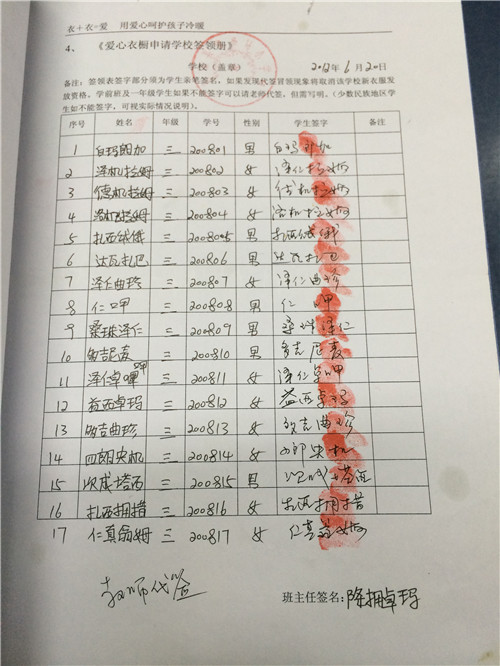 衣+衣=爱 用爱心呵护孩子冷暖
4、 《爱心衣橱申请学校签领册》
学校（盖章） 2012年6月20日
备注：签领表签字部分须为学生亲笔签名，如果发现代签冒领现象将取消该学校新衣服发
放资格。学前班及一年级学生如果不能签字可以请老师代签。但需写明。（少数民族地区学
生如不能签字，可视实际情况说明）。
序号 姓名 年级 学号 性别 学生签字 备注
1 白玛郎加 三 200801 男 白玛郎加
2 泽机拉姆 三 200802 女
3 德机拉姆 三 200803 女
4 洛机拉姆 三 200804 女
5 扎西绒俄 三 2008005 男
6 达瓦扎巴 三 200806 男 达瓦扎巴
7 泽仁曲珍 三 200807 女 泽仁曲珍
8 仁呷 三 200808 男 仁呷
9 桑珠泽仁 三 200809 男 桑珠泽仁
10 三 200810 男
11 泽仁卓呷 三 200811 女 泽仁卓呷
12 益西卓玛 三 200812 女 益西卓玛
13 曲珍 三 200813 女 曲珍
14 四郎央机 三 200814 女 四郎央机
15 次成塔西 三 200815 男
16 扎西拥措 三 200816 女 扎西拥措
17 仁真翁姆 三 200817 女 仁真翁姆
教师代签
班主任签名：降拥卓玛